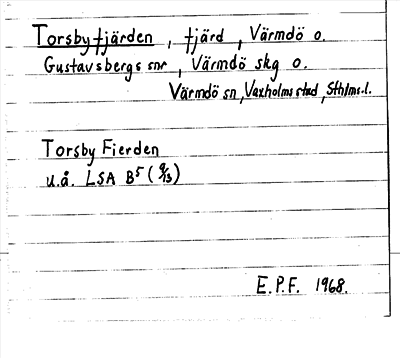 Torsbyfjärden, fjärd, Värmdö o.
Gustavsbergs snr, Värmdö skg o.
Värmdö sn, Vaxholms stad, Sthlms l.
Torsby Fierden
u.å. LSA B5 (9/13)
E.P.F. 1968.